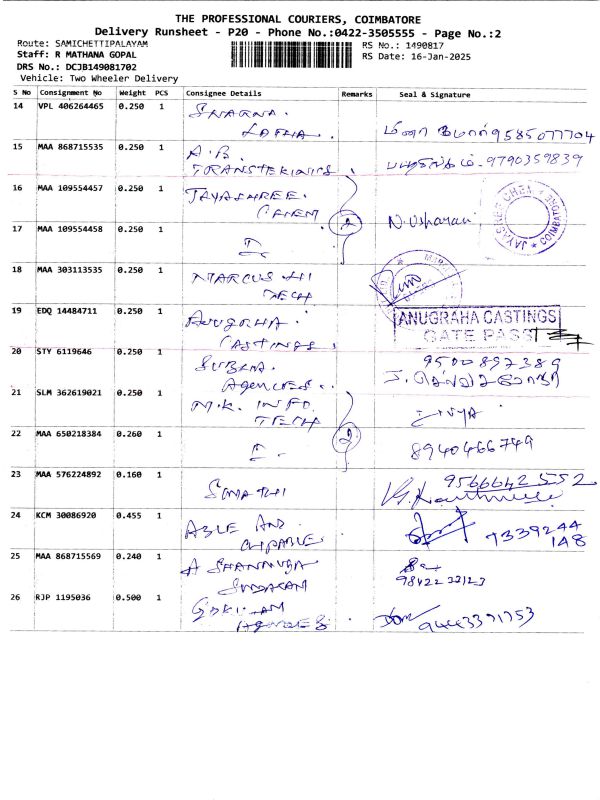 THE PROFESSIONAL COURIERS, COIMBATORE
Delivery Runsheet - P20 - Phone No.:0422-3505555 - Page No.:2
Route: SAMICHETTIPALAYAM
RS No.: 1490817
Staff: R MATHANA GOPAL
RS Date: 16-Jan-2025
DRS No.: DCJB149081702
Vehicle: Two Wheeler Delivery
S No Consignment No Weight PCS Consignee Details Remarks Seal & Signature
14 VPL 406264465 0.250 1
9585077704
15 MAA 868715535 0.250 1 A.B.
9790359839
16 MAA 109554457 0.250 1 JAYASHREE.
CHEM
JAYASHREE CHEM ★ COIMBATORE ★
17 MAA 109554458 0.250 1 2
18 MAA 303113535 0.250 1 MARCUS HI
TECH
19 EDQ 14484711 0.250 1 ANUGRHA.
CASTINGS
ANUGRAHA CASTINGS
GATE PASS
20 STY 6119646 0.250 1
AGENCIES..
9500892389
21 SLM 362619021 0.250 1 M.K. INFO.
TECH
22 MAA 650218384 0.260 1 2
8940466749
23 MAA 576224892 0.160 1 SUMATHI
9566642552
24 KCM 30086920 0.455 1 ABLE AND
7339244
148
25 MAA 868715569 0.240 1 A SHANMUGA
SUNDARAM
26 RJP 1195036 0.500 1
AGENCIES
9443371753